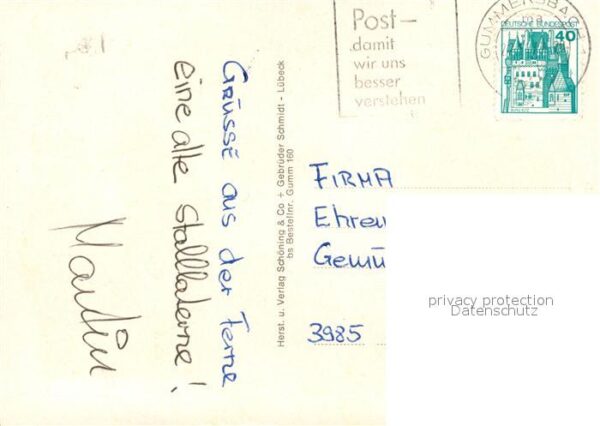 Post –
damit
wir uns
besser
verstehen
GUMMERSBACH
DEUTSCHE BUNDESPOST
40
Grüsse aus der Ferne
eine alte Stalllaterne!
Martin
Herst. u. Verlag Schöning & Co + Gebrüder Schmidt - Lübeck
bs Bestellnr. Gumm 160
FIRMA
Ehren
Gewü
3985
privacy protection
Datenschutz